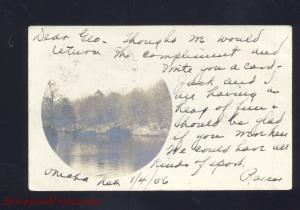 Dear Geo - Thought I'd would
return the compliment and
write you a card -
Jack and I
are having a
heap of fun &
should be glad
if you were here
We could have all
kinds of sport.
Omaha Neb 1/4/06